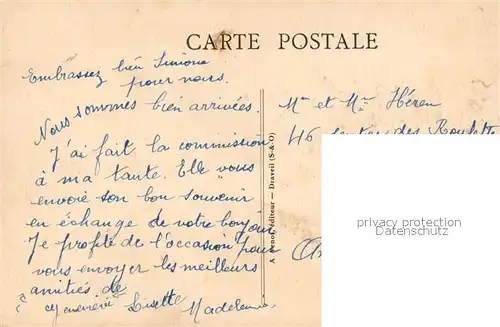 CARTE POSTALE
Embrassez bien Simone
pour nous.
Nous sommes bien arrivées.
J'ai fait la commission
à ma tante. Elle vous
envoie son bon souvenir
en échange de votre bonjour
Je profite de l'occasion pour
vous envoyer les meilleurs
amitiés de
Geneviève Lisette Madeleine
A. Éditeur - Draveil (S-&-O)
Mr et Mme
46 des
privacy protection
personal data